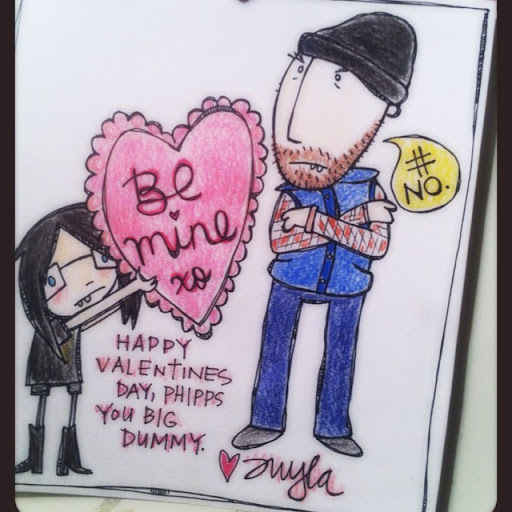 Be
mine
xo
#
NO.
HAPPY
VALENTINES
DAY, PHIPPS
YOU BIG
DUMMY.